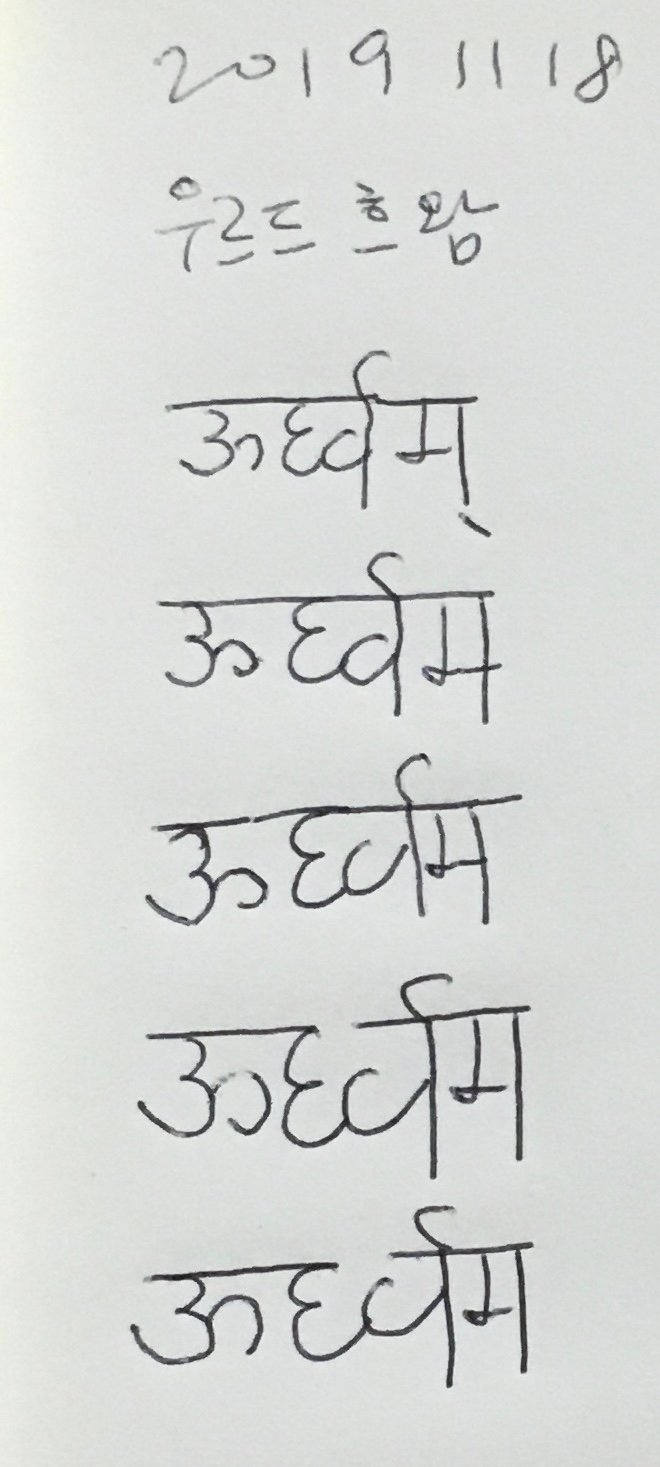 2019 11 18
우르드 흐왐
ऊर्ध्वम्
ऊर्ध्वम
ऊर्ध्वम
ऊर्ध्वम
ऊर्ध्वम